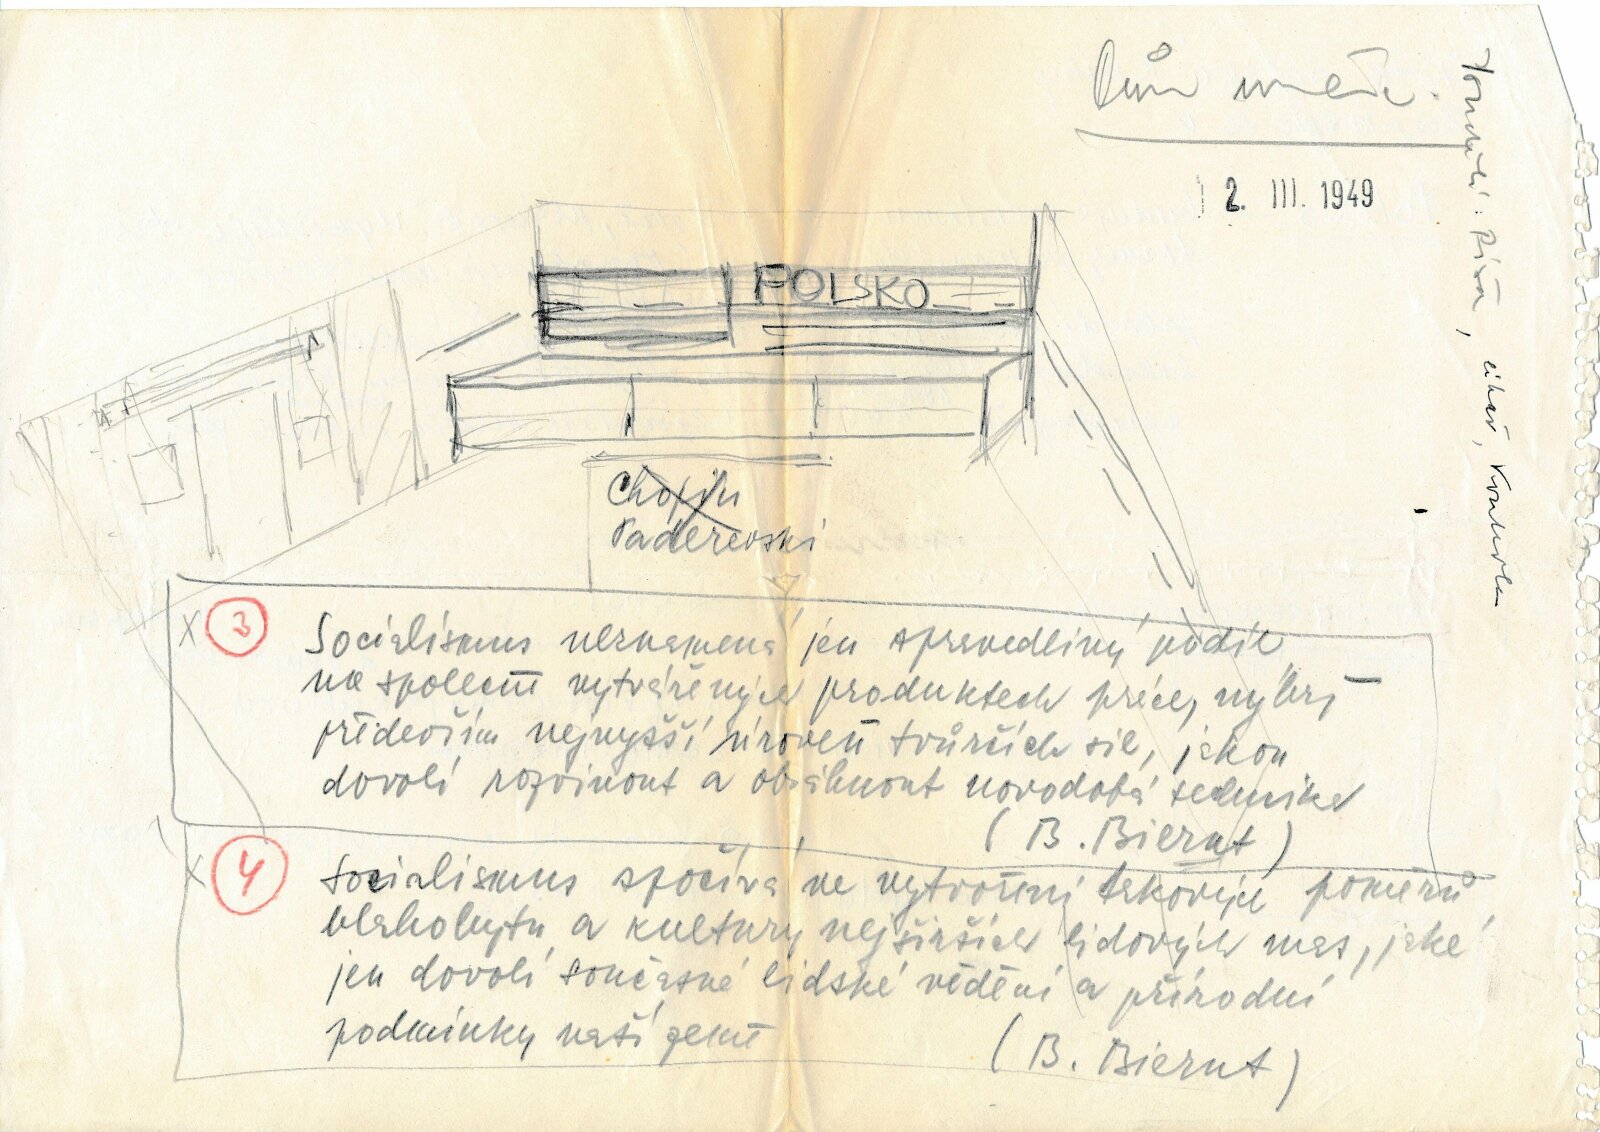 Dům umělc.
2. III. 1949
POLSKO
Chopin
Paderevski
x 3 Socialismus neznamená jen spravedlivý podíl
na společně vytvářených produktech práce, nýbrž
především nejvyšší úroveň tvůrčích sil, jakou
dovolí rozvinout a obsáhnout novodobá technika
(B. Bierut)
x 4 Socialismus spočívá ve vytvoření takových poměrů
blahobytu a kultury nejširších lidových mas, jaké
jen dovolí současné lidské vědění a přírodní
podmínky naší země
(B. Bierut)